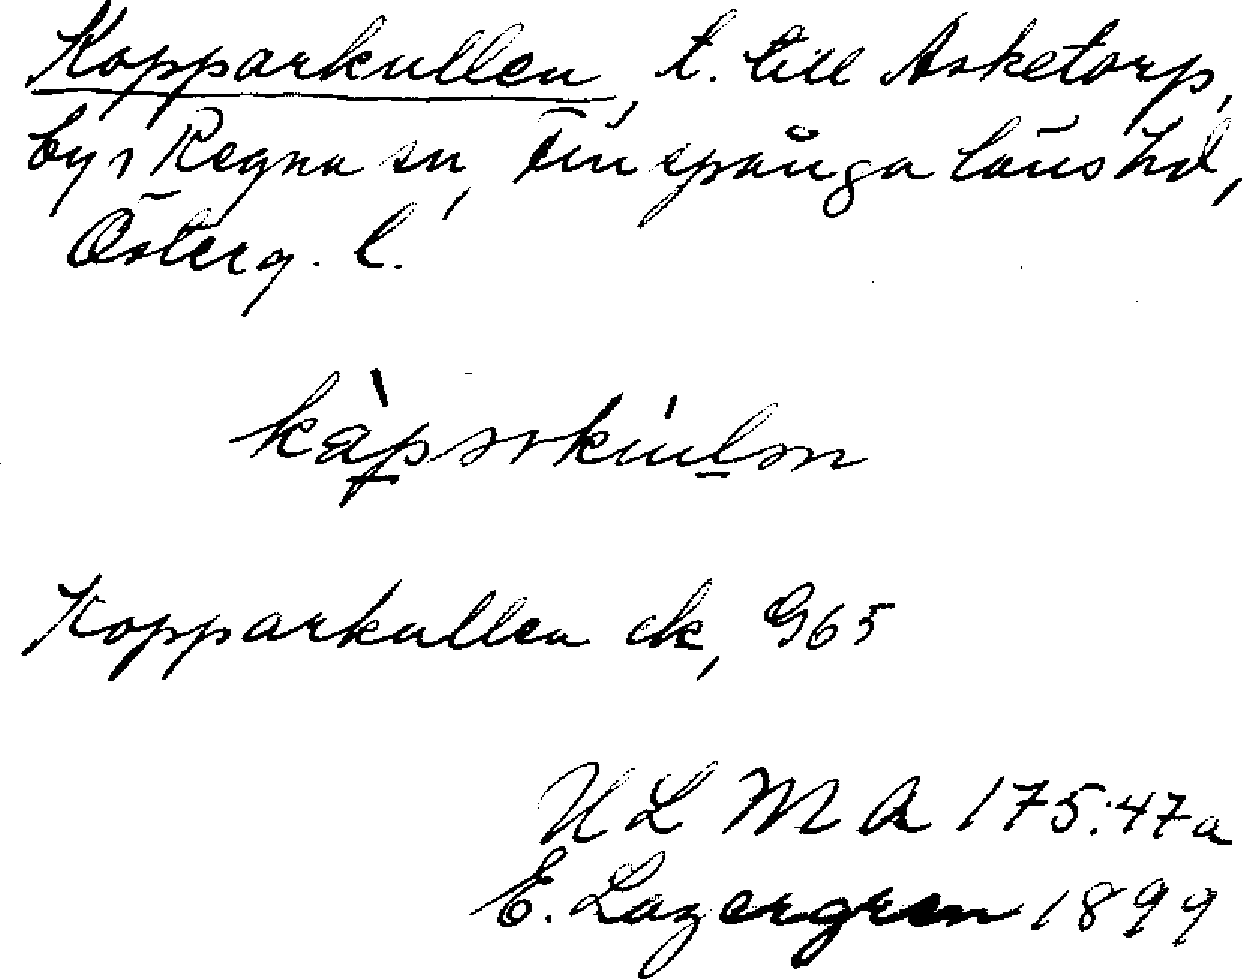 Kopparkullen, t. till Asketorp,
by i Regna sn, Finspånga läns hd,
Österg. l.
Kopparkullen ek, G65
ULMA 175:47a
E. Lagergren 1899